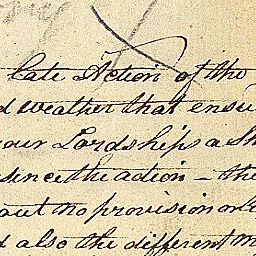 late Action of the
d weather that ensu
your Lordships a Sh
since the action – the
out no provision or
d also the different m